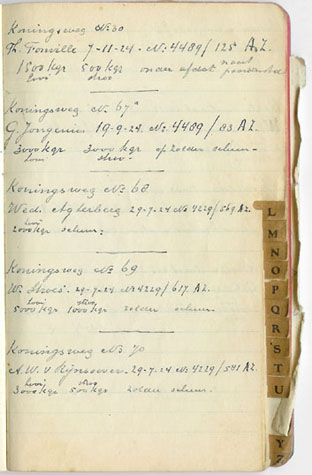 Koningsweg No 30
Th. Fonville 7-11-24. No. 4489/125 A.Z.
1500 kgr 500 kgr onder afdak naast paardenstal
hooi stroo
Koningsweg No. 67a
G. Jongerius 19-9-24. No 4409/83 A.Z.
3000 kgr 3000 kgr op zolder schuur-
hooi stroo-
Koningsweg No 68
Wed. Agterberg 29-7-24 No 4229/569 A.Z.
hooi
2000 kgr schuur;
Koningsweg No 69
29-7-24 No 4229/617 A.Z.
hooi stroo
5000 kgr 1000 kgr zolder schuur-
Koningsweg No 70
A.W. v Rijnsoever - 29-7-24 No 4229/571 A.Z.
hooi stroo
3000 kgr 500 kgr zolder schuur.
L
M
N
O
P
Q
R
S
T
U
Y
Z